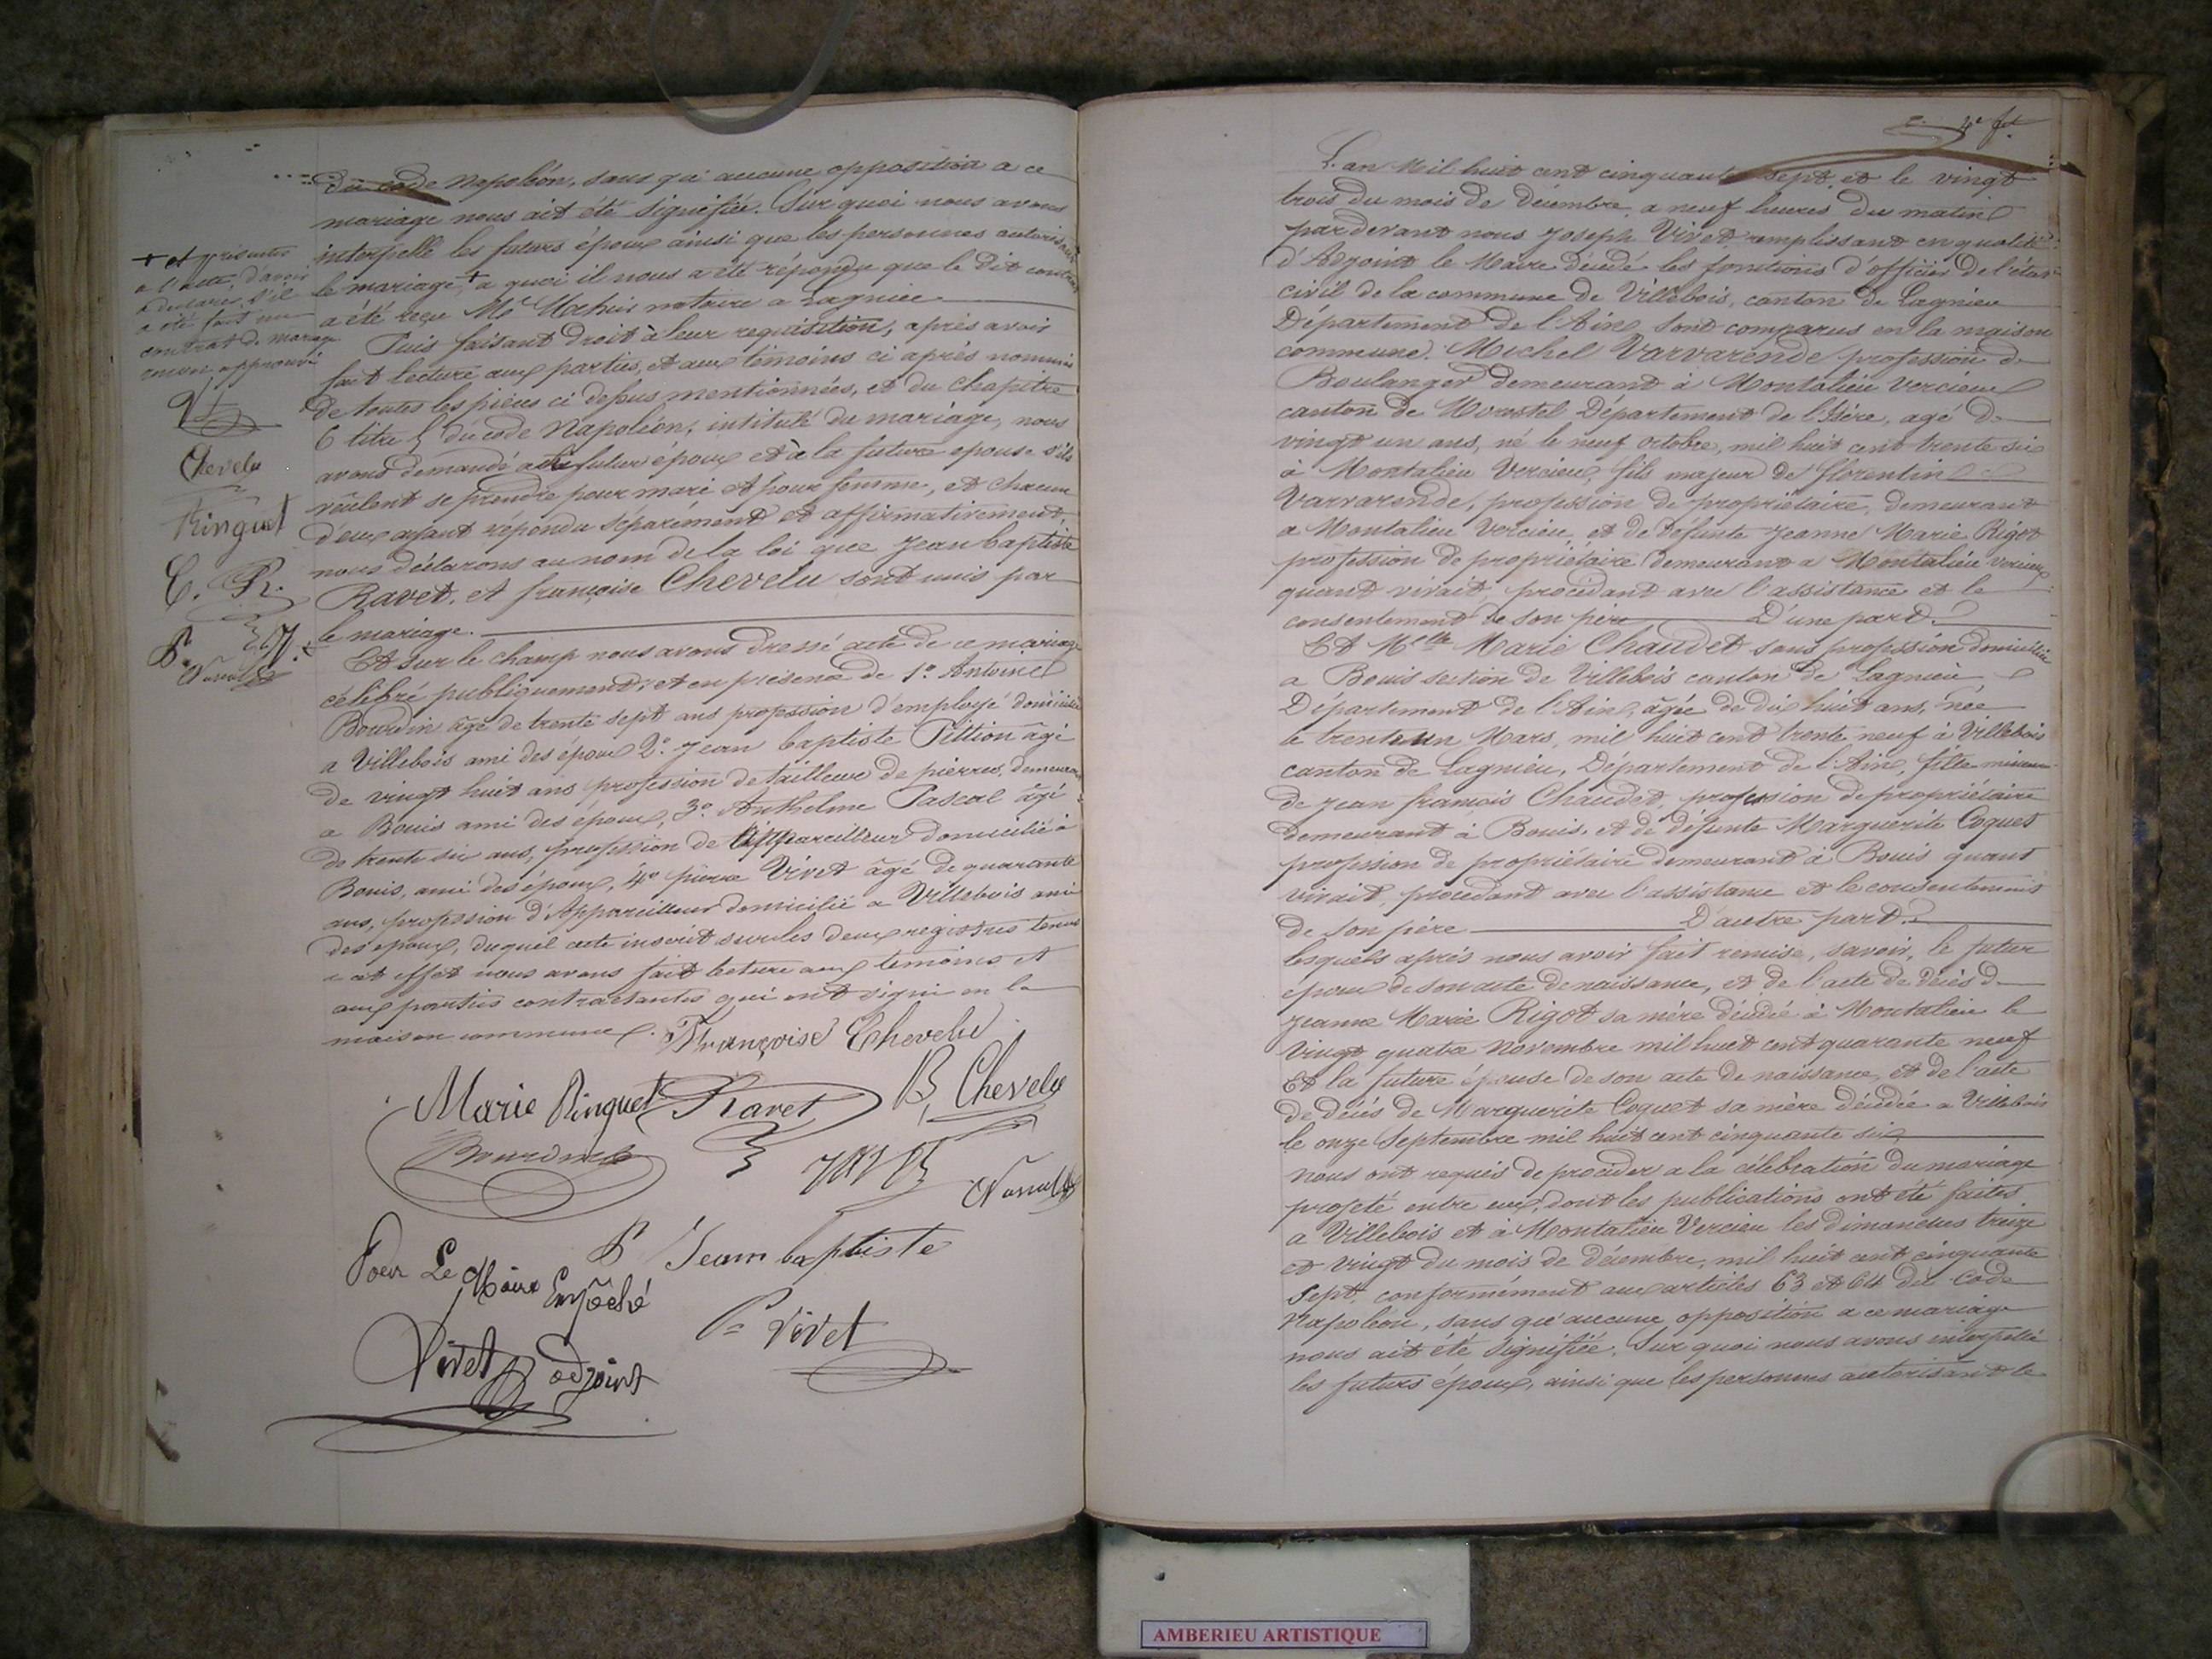 du code Napoléon, sans qu'aucune opposition a ce
mariage nous ait été signifiée. Sur quoi nous avons
interpellé les futurs époux ainsi que les personnes autorisant
le mariage + a quoi il nous a été répondu que le dit contrat
a été reçu Me notaire a Lagnieu
Puis faisant droit à leur requisition, après avoir
fait lecture aux parties, et aux témoins ci après nommés
de toutes les pièces ci dessus mentionnées, et du chapitre
6 titre 5 du code Napoléon, intitulé du mariage, nous
avons demandé au futur époux et à la future epouse s'ils
veulent se prendre pour mari et pour femme, et chacun
d'eux ayant répondu séparément et affirmativement,
nous déclarons au nom de la loi que Jean baptiste
Ravet, et françoise Chevelu sont unis par
le mariage.
Et sur le champ nous avons dressé acte de ce mariage
célébré publiquement, et en présence de 1° Antoine
Bourdin âgé de trente sept ans profession d'employé domicilié
a Villebois ami des époux 2° Jean baptiste Tittion âgé
de vingt huit ans profession de tailleur de pierres, demeurant
a Bouis ami des époux, 3° Anthelme Pascal âgé
de trente six ans, profession de appareilleur domicilié à
Bouis, ami des époux, 4° pierre Vivet âgé de quarante
ans, profession d'Appareilleur domicilié a Villebois ami
des epoux, duquel acte inscrit sur les deux registres tenus
a cet effet nous avons fait lecture aux temoins et
aux parties contractantes qui ont signé en la
maison commune.
+ et présentes
a l'acte, d'avoir
a declarer s'il
a été fait un
contrat de mariage
renvoi approuvé
V
Chevelu
Ringuet
C. R.
Françoise Chevelu
Marie Ringuet Ravet B. Chevelu
Bourdin
P Jean baptiste
Pour Le Maire Empêché
Pre Vivet
Vivet adjoint
4e ft
L'an Mil huit cent cinquante sept, et le vingt
trois du mois de Décembre, a neuf heures du matin
pardevant nous Joseph Vivet remplissant en qualité
d'Adjoint le Maire décédé les fonctions d'officier de l'état
civil de la commune de Villebois, canton de Lagnieu
Département de l'Ain, sont comparus en la maison
commune. Michel Varvarende profession de
Boulanger demeurant à Montalieu Vercieu
canton de Morestel Département de l'Isère, agé de
vingt un ans, né le neuf octobre, mil huit cent trente six
à Montalieu Vercieu, fils majeur de florentin
Varvarende, profession de propriétaire, demeurant
a Montalieu Vercieu, et de défunte Jeanne Marie Rigot
profession de propriétaire demeurant a Montalieu vercieu
quant vivait, procédant avec l'assistance et le
consentement de son père D'une part.
Et Melle Marie Chaudet sans profession domiciliée
a Bouis section de Villebois canton de Lagnieu
Département de l'Ain, âgée de dix huit ans, née
le trente un Mars, mil huit cent trente neuf à Villebois
canton de Lagnieu, Département de l'Ain, fille mineure
de Jean françois Chaudet, profession de propriétaire
demeurant à Bouis, et de défunte Marguerite Coquet
profession de propriétaire demeurant à Bouis quant
vivait, procédant avec l'assistance et le consentement
de son père D'autre part.
lesquels après nous avoir fait remise, savoir, le futur
epoux de son acte de naissance, et de l'acte de décès de
Jeanne Marie Rigot sa mère décédée à Montalieu le
vingt quatre Novembre mil huit cent quarante neuf
Et la future épouse de son acte de naissance, et de l'acte
de décés de Marguerite Coquet sa mère décédée a Villebois
le onze Septembre mil huit cent cinquante six
nous ont requis de procéder a la célébration du mariage
projeté entre eux, dont les publications ont été faites
a Villebois et à Montalieu Vercieu les dimanches treize
et vingt du mois de décembre, mil huit cent cinquante
sept, conformément aux articles 63 et 64 du Code
Napoléon, sans qu'aucune opposition a ce mariage
nous ait été signifiée. Sur quoi nous avons interpellé
les futurs époux, ainsi que les personnes autorisant le
AMBERIEU ARTISTIQUE